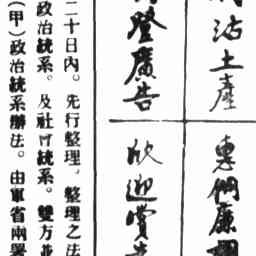 沽土產
登廣告
廉
欣迎賞
二十日內。先行整理。整理之法
政治統系。及社會統系。雙方並
(甲)政治統系辦法。由軍省兩署